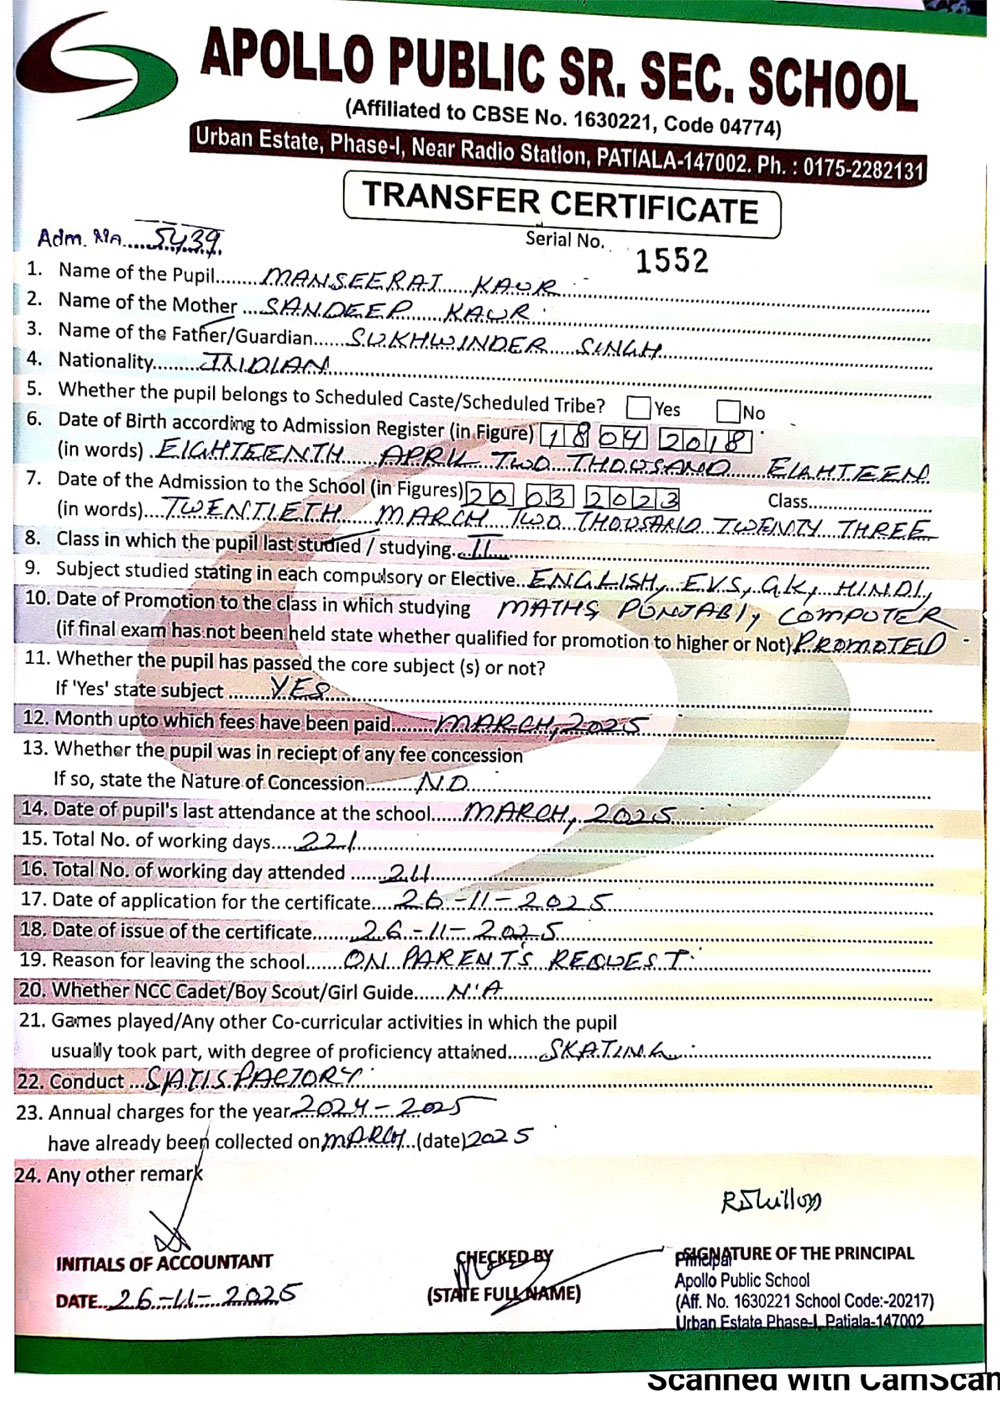 APOLLO PUBLIC SR. SEC. SCHOOL
(Affiliated to CBSE No. 1630221, Code 04774)
Urban Estate, Phase-I, Near Radio Station, PATIALA-147002. Ph. : 0175-2282131
TRANSFER CERTIFICATE
Adm. No. 5439
Serial No. 1552
1. Name of the Pupil MANSEERAT KAUR
2. Name of the Mother SANDEEP KAUR
3. Name of the Father/Guardian SUKHWINDER SINGH
4. Nationality INDIAN
5. Whether the pupil belongs to Scheduled Caste/Scheduled Tribe? Yes No
6. Date of Birth according to Admission Register (in Figure) 18 04 2018
(in words) EIGHTEENTH APRIL TWO THOUSAND EIGHTEEN
7. Date of the Admission to the School (in Figures) 20 03 2023 Class
(in words) TWENTIETH MARCH TWO THOUSAND TWENTY THREE
8. Class in which the pupil last studied / studying. II
9. Subject studied stating in each compulsory or Elective ENGLISH, EVS, GK, HINDI,
10. Date of Promotion to the class in which studying MATHS, PUNJABI, COMPUTER
(if final exam has not been held state whether qualified for promotion to higher or Not) PROMOTED
11. Whether the pupil has passed the core subject (s) or not?
If 'Yes' state subject YES
12. Month upto which fees have been paid MARCH, 2025
13. Whether the pupil was in reciept of any fee concession
If so, state the Nature of Concession NO
14. Date of pupil's last attendance at the school MARCH, 2025
15. Total No. of working days 221
16. Total No. of working day attended 211
17. Date of application for the certificate 26-11-2025
18. Date of issue of the certificate 26-11-2025
19. Reason for leaving the school ON PARENT'S REQUEST
20. Whether NCC Cadet/Boy Scout/Girl Guide N.A
21. Games played/Any other Co-curricular activities in which the pupil
usually took part, with degree of proficiency attained SKATING
22. Conduct SATISFACTORY
23. Annual charges for the year 2024-2025
have already been collected on MARCH (date) 2025
24. Any other remark
INITIALS OF ACCOUNTANT
DATE 26-11-2025
CHECKED BY
(STATE FULL NAME)
SIGNATURE OF THE PRINCIPAL
Principal
Apollo Public School
(Aff. No. 1630221 School Code:-20217)
Urban Estate Phase-I, Patiala-147002
Scanned with CamScan